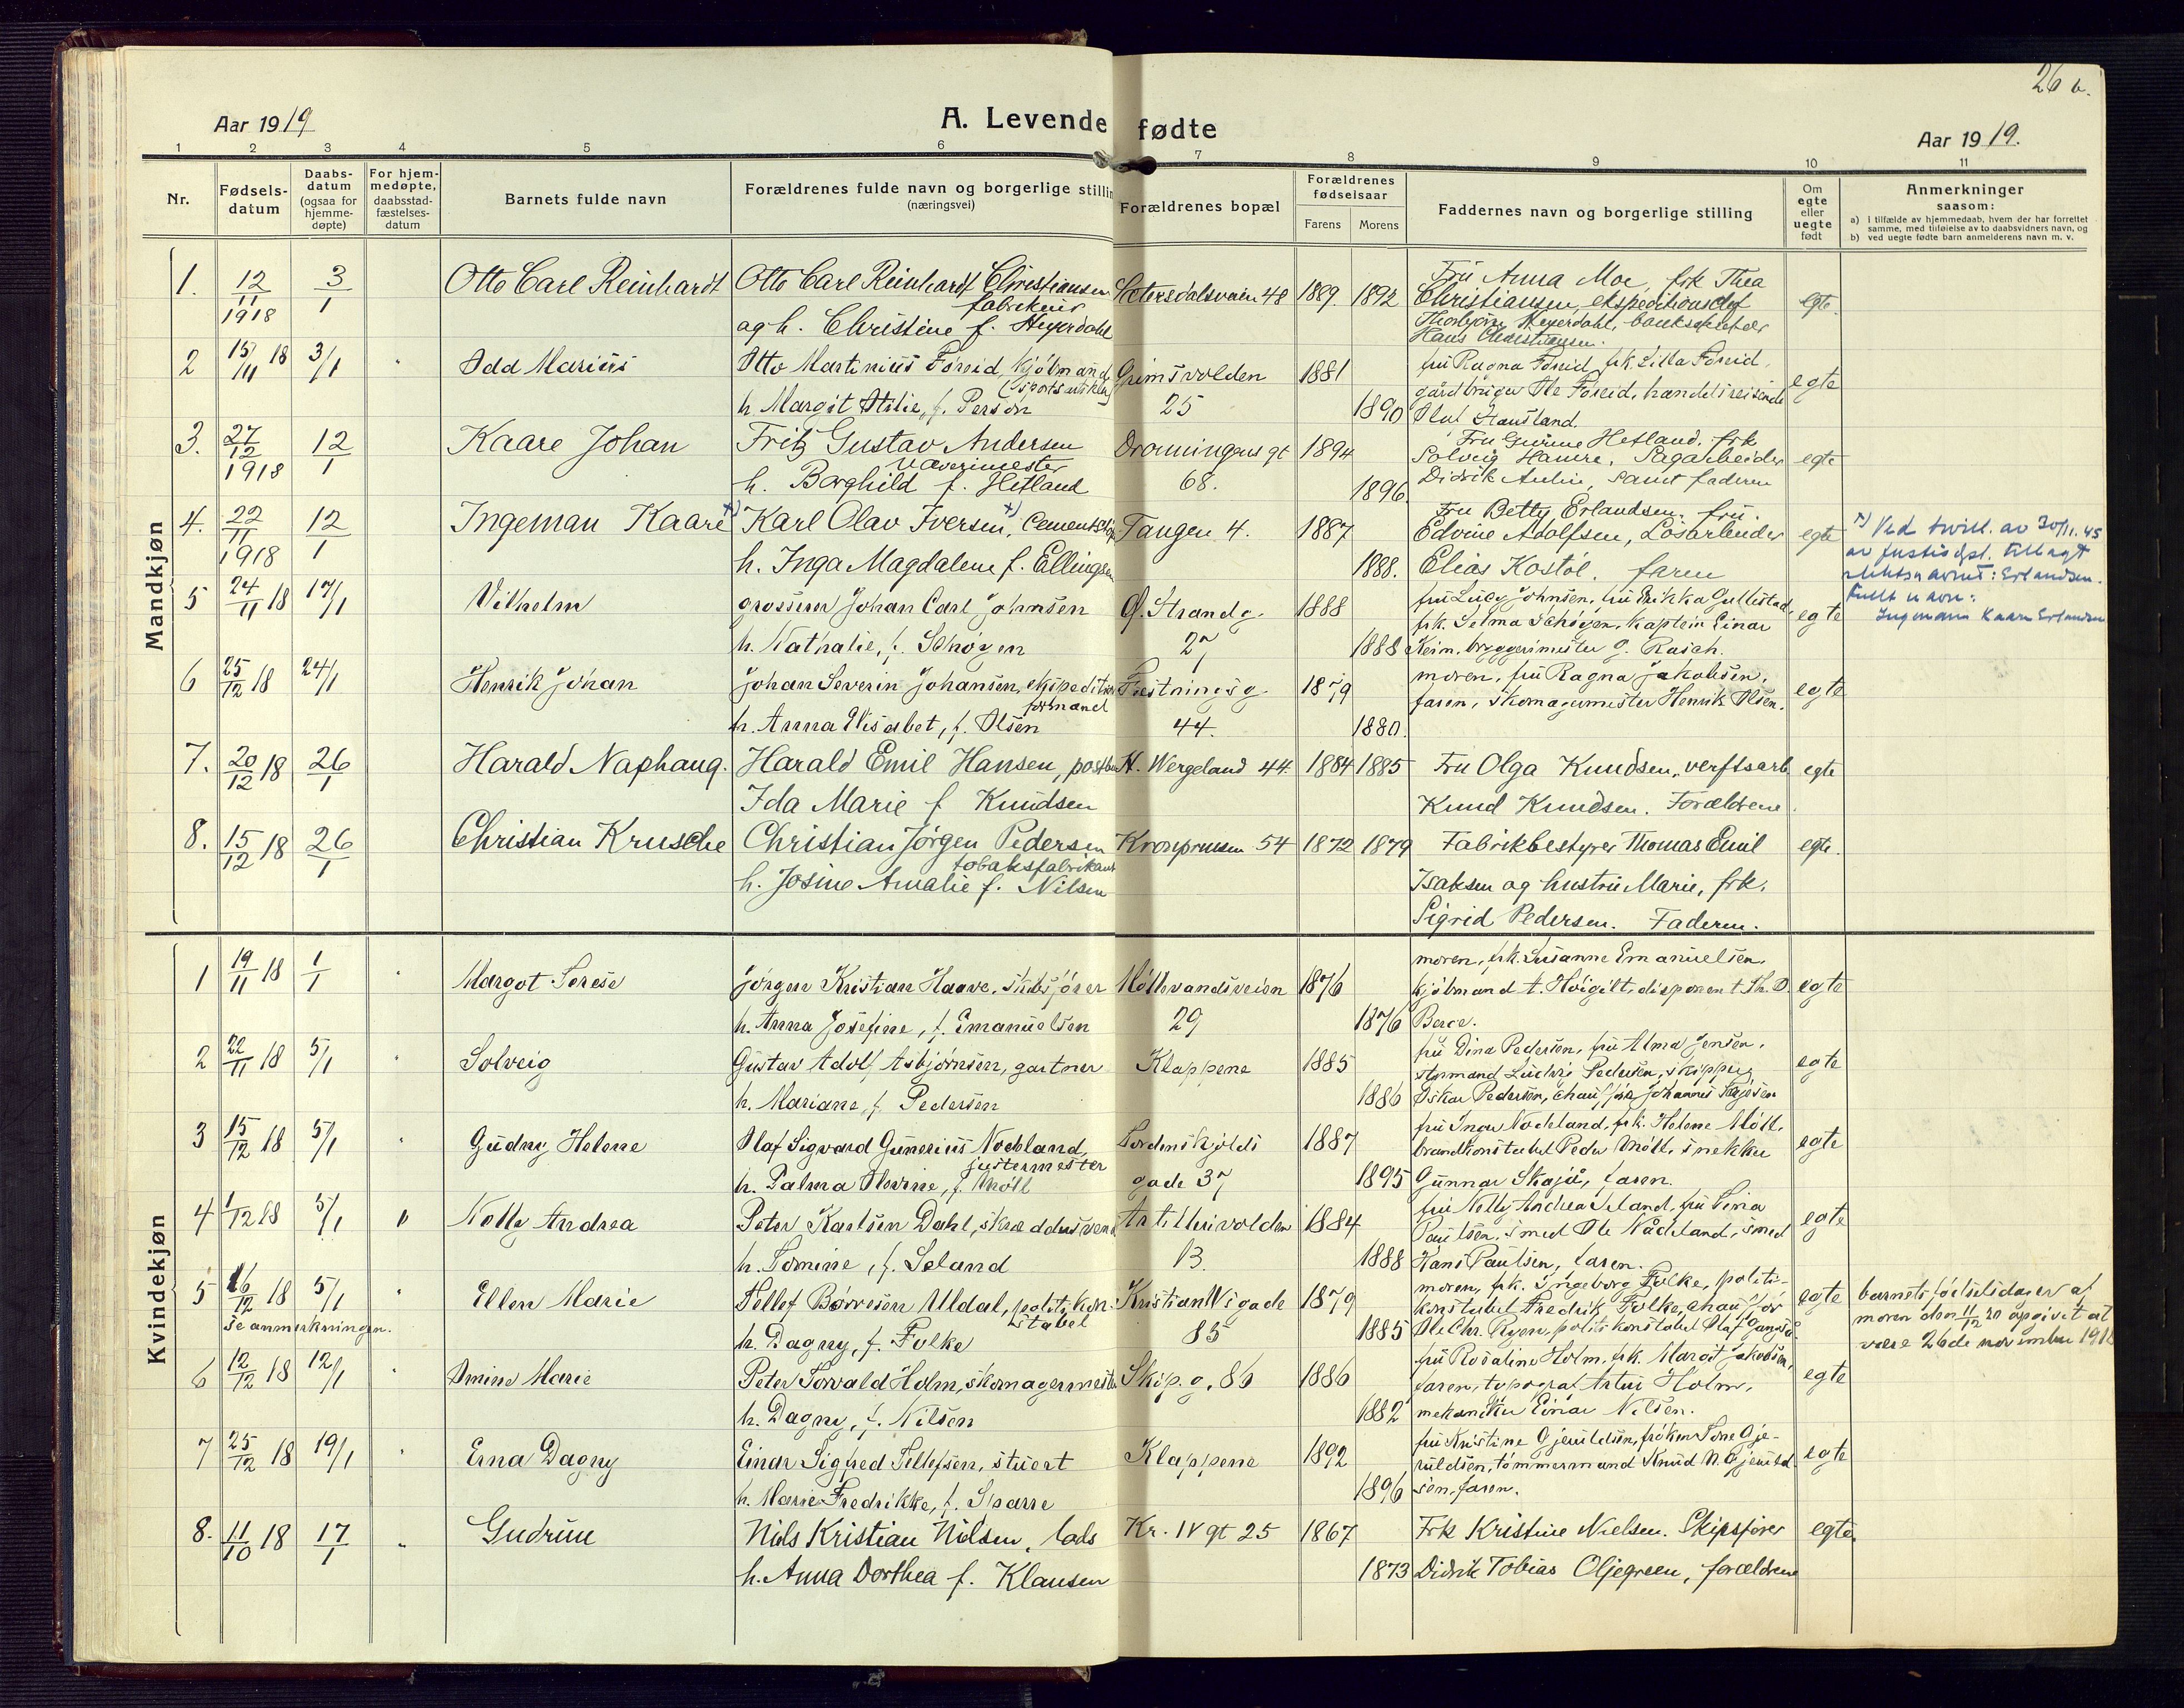 26 b.
Aar 1919
A. Levende fødte
Aar 1919.
1 2 3 4 5 6 7 8 9 10 11
Nr.
Fødsels-
datum
Daabs-
datum
(ogsaa for
hjemme-
døpte)
For hjem-
medøpte,
daabsstad-
fæstelses-
datum
Barnets fulde navn
Forældrenes fulde navn og borgerlige stillin
(næringsvei)
Forældrenes bopæl
Forældrenes
fødselsaar
Farens Morens
Faddernes navn og borgerlige stilling
Om
egte
eller
uegte
født
Anmerkninger
saasom:
a) I tilfælde av hjemmedaab, hvem der har forrettet
samme, med tilføielse av to daabsvidners navn, og
b) ved uegte fødte barn anmelderens navn m. v.
Mandkjøn
1. 12/11 1918 3/1 Otto Carl Reinhardt Otto Carl Reinhardt Christiansen Sætersdalsveien 48 1889. 1892 Fru Anna Moe, frk Thea egte.
fabrikeier Christiansen, ekspeditionschef
og h. Christine f. Heyerdahl Thorbjørn Heyerdahl, banksekretær
Hans Christiansen.
2 15/11 18 3/1 " Odd Marius Otto Martinius Foreid, kjøbmand Grimsvolden 1881 fru Ragna Foreid, frk. Lilla Foreid, egte
(sportsartikler) gårdbruger Ole Foreid, handelsreisende
h. Margit Otilie, f. Person 25 1890 Olaf Haustland.
3. 27/12 1918 12/1 Kaare Johan Fritz Gustav Andersen Dronningens gt 1894 Fru Gurine Hefland, frk egte
Væverimester Solveig Hamre, Sagarbeider
h. Borghild f. Hefland 68. 1896 Didrik Aulin, samt faderen
4. 22/11 1918 12/1 Ingeman Kaare x) Karl Olav Iversen x), Cementstøp Tangen 4. 1887 Fru Betty Erlandsen, fru egte
Edvine Adolfsen, Løsarbeider
h. Inga Magdalene f. Ellingsen 1888. Elias Kostøl. faren
x) Ved bevill. av 30/11. 45
av Justisdpt. tillagt
slektsnavnet: Erlandsen.
Fullt navn:
Ingemann Kaare Erlandsen
5 24/11 18 17/1 Vilhelm grosserer Johan Carl Johnsen Ø. Strandg. 1888 fru Lucy Johnsen, fru Erikka Gullestad, egte
frk. Selma Schøyen, kaptein Einar
h. Nathalie, f. Schøyen 27 1888 Keim, bryggerimester G. Rasch.
6 25/12 18 24/1 Henrik Johan Johan Severin Johansen, ekspeditions Festningsg. 1879 moren, fru Ragna Jakobsen, egte
formand faren, skomagermester Henrik Olsen.
h. Anna Elisabet, f. Olsen 44. 1880.
7. 20/12 18 26/1 Harald Naphaug. Harald Emil Hansen, postbu H. Wergeland 44. 1884 1885 Fru Olga Knudsen, verftsarb egte
Ida Marie f Knudsen Knud Knudsen. Forældrene.
8. 15/12 18 26/1 Christian Krusche Christian Jørgen Pedersen Kronprinsen 54 1872 1879 Fabrikbestyrer Thomas Emil egte.
tobaksfabrikant
h. Josine Amalie f. Nilsen Isaksen og hustru Marie, frk.
Sigrid Pedersen. Faderen.
Kvindekjøn
1 19/11 18 1/1 " Margot Terese Jørgen Kristian Haave, skibsfører Møllevandsveien 1876 moren, frk. Susanne Emanuelsen, egte
kjøbmand t. Høigilt, disponent Th. D.
h. Anna Josefine, f. Emanuelsen 29 1876 Berge.
2 22/11 18 5/1 " Solveig Gustav Adolf Asbjørnsen, gartner Klappene 1885 fru Dina Pedersen, fru Alma Jensen, egte
styrmand Ludvig Pedersen, skipper
h. Mariane, f. Pedersen 1886 Oskar Pedersen, chauffør Johannes
3 15/12 18 5/1 " Gudny Helene Olaf Sigvard Gunerius Nodeland, Tordenskjolds 1887 fru Inga Nodeland, frk. Helene Møll, egte
justermester brandkonstabel Peder Møll, snekker
h. Palma Olevine, f. Møll gade 37 1895 Gunnar Skajå, faren.
4 1/12 18 5/1 " Nelly Andrea Peter Karlsen Dahl, skræddersvend Artillerivolden 1884 fru Nelly Andrea Seland, fru Sina egte
Paulsen, smed Ole Nådeland, smed
h. Tomine, f. Seland 13. 1888 Hans Paulsen, faren.
5 16/12 18 5/1 " Ellen Marie Tellef Børresen Uldal, politikon- Kristian IVs gade 1879 moren, frk. Ingeborg Folke, politi- egte
se anmerkningen. stabel konstabel Fredrik Folke, chauffør
h. Dagny, f. Folke 85 1885 Ole Chr. Ryen, politikonstabel Olaf
barnets fødselsdag er af
moren den 11/12 20 opgivet at
være 26de november 1918
6 12/12 18 12/1 " Omine Marie Peter Torvald Holm, skomagermester Skip. g. 86 1886 fru Rosaline Holm, frk. Margit Jakobsen, egte
faren, typograf Artur Holm,
h. Dagny, f. Nilsen 1882 mekaniker Einar Nilsen.
7 25/12 18 19/1 " Erna Dagny Einar Sigfred Tellefsen, stuert Klappene 1892 fru Kristine Gjeruldsen, frøken Tone Gje- egte
ruldsen, tømmermand Knud N. Gjeruld
h. Marie Fredrikke, f. Sparre 1896 sen, faren.
8. 11/10 18 17/1 " Gudrun Nils Kristian Nilsen, lods Kr. IV gt 25 1867 Frk Kristine Nielsen. Skipsfører egte.
h. Anna Dorthea f. Klausen 1873 Didrik Tobias Oljegreen, forældrene